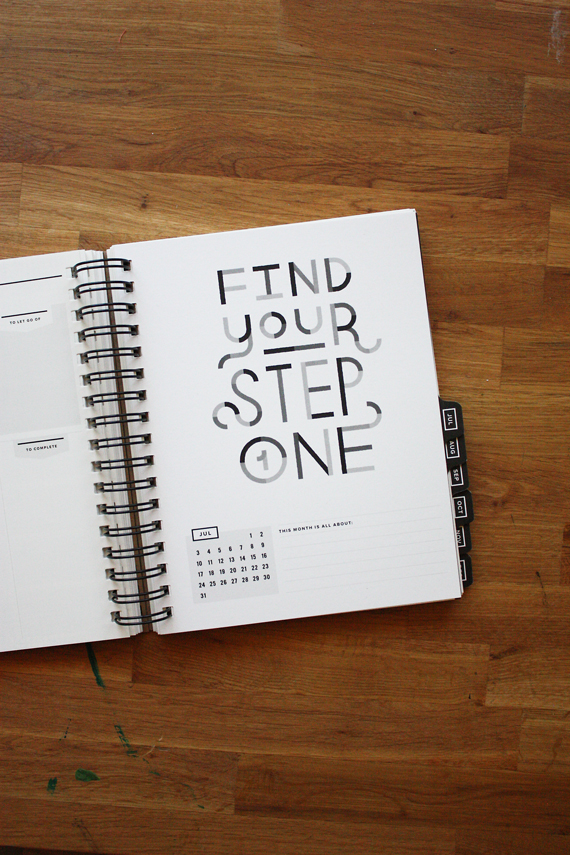 TO LET GO OF
TO COMPLETE
FIND
YOUR
STEP
ONE
1
JUL
1 2
3 4 5 6 7 8 9
10 11 12 13 14 15 16
17 18 19 20 21 22 23
24 25 26 27 28 29 30
31
THIS MONTH IS ALL ABOUT:
JUL
AUG
SEP
OCT
NOV